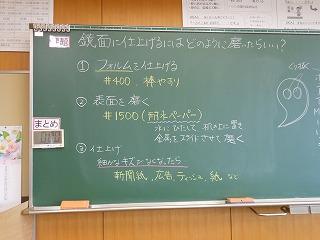 鏡面に仕上げるにはどのように磨ったらいい?
① フォルムを仕上げる
#400、棒やすり
② 表面を磨く
#1500(耐水ペーパー)
水にひたして 机の上に置き
金属をスライドさせて 磨く
まとめ
③ 仕上げ
細かなキズがなくなったら
新聞紙、広告、ティッシュ、紙 など